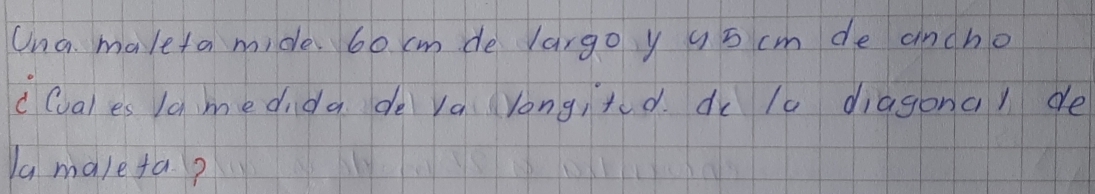 Una maleta mide 60 cm de largo y 45 cm de ancho
¿Cual es la medida de la longitud de la diagonal de
la maleta?